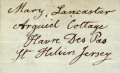 Mary Lancaster
Arguiel Cottage
Havre Des Pas
St Helier Jersey